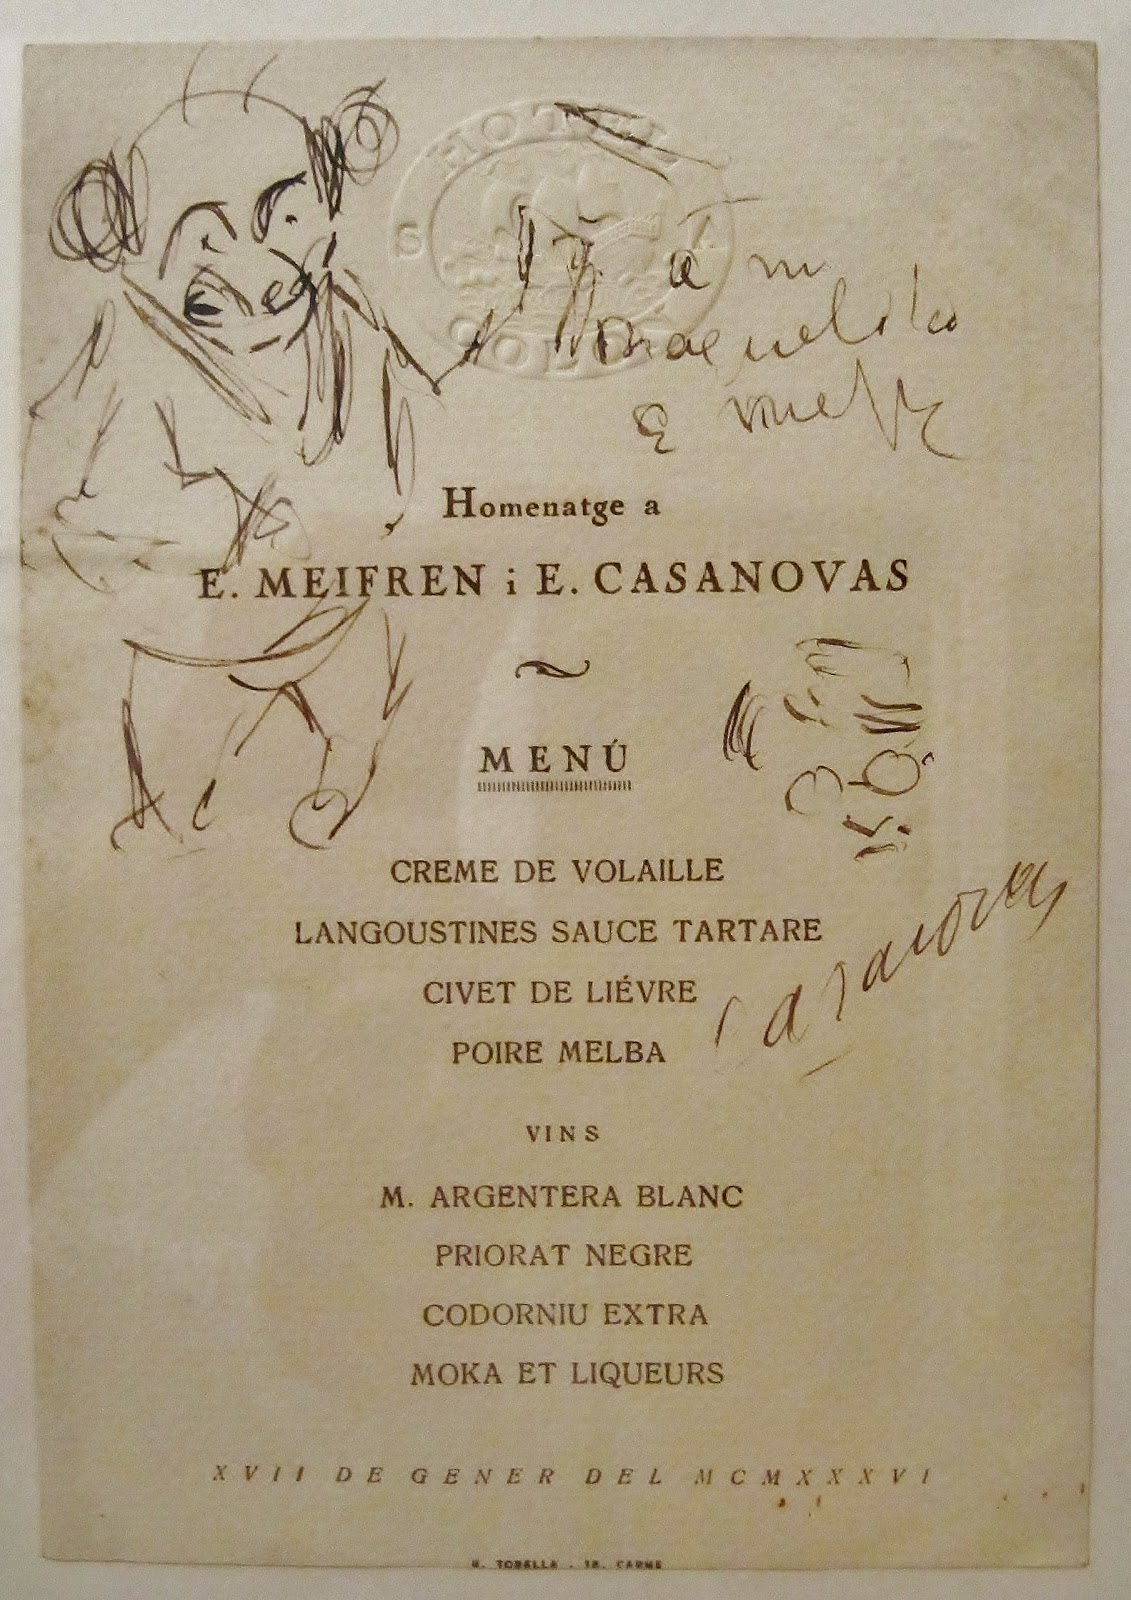 HOTEL
COLON
Homenatge a
E. MEIFREN i E. CASANOVAS
MENÚ
CREME DE VOLAILLE
LANGOUSTINES SAUCE TARTARE
CIVET DE LIÉVRE
POIRE MELBA
Casanovas
VINS
M. ARGENTERA BLANC
PRIORAT NEGRE
CODORNIU EXTRA
MOKA ET LIQUEURS
XVII DE GENER DEL MCMXXXVI
TOBELLA . 18, CARME